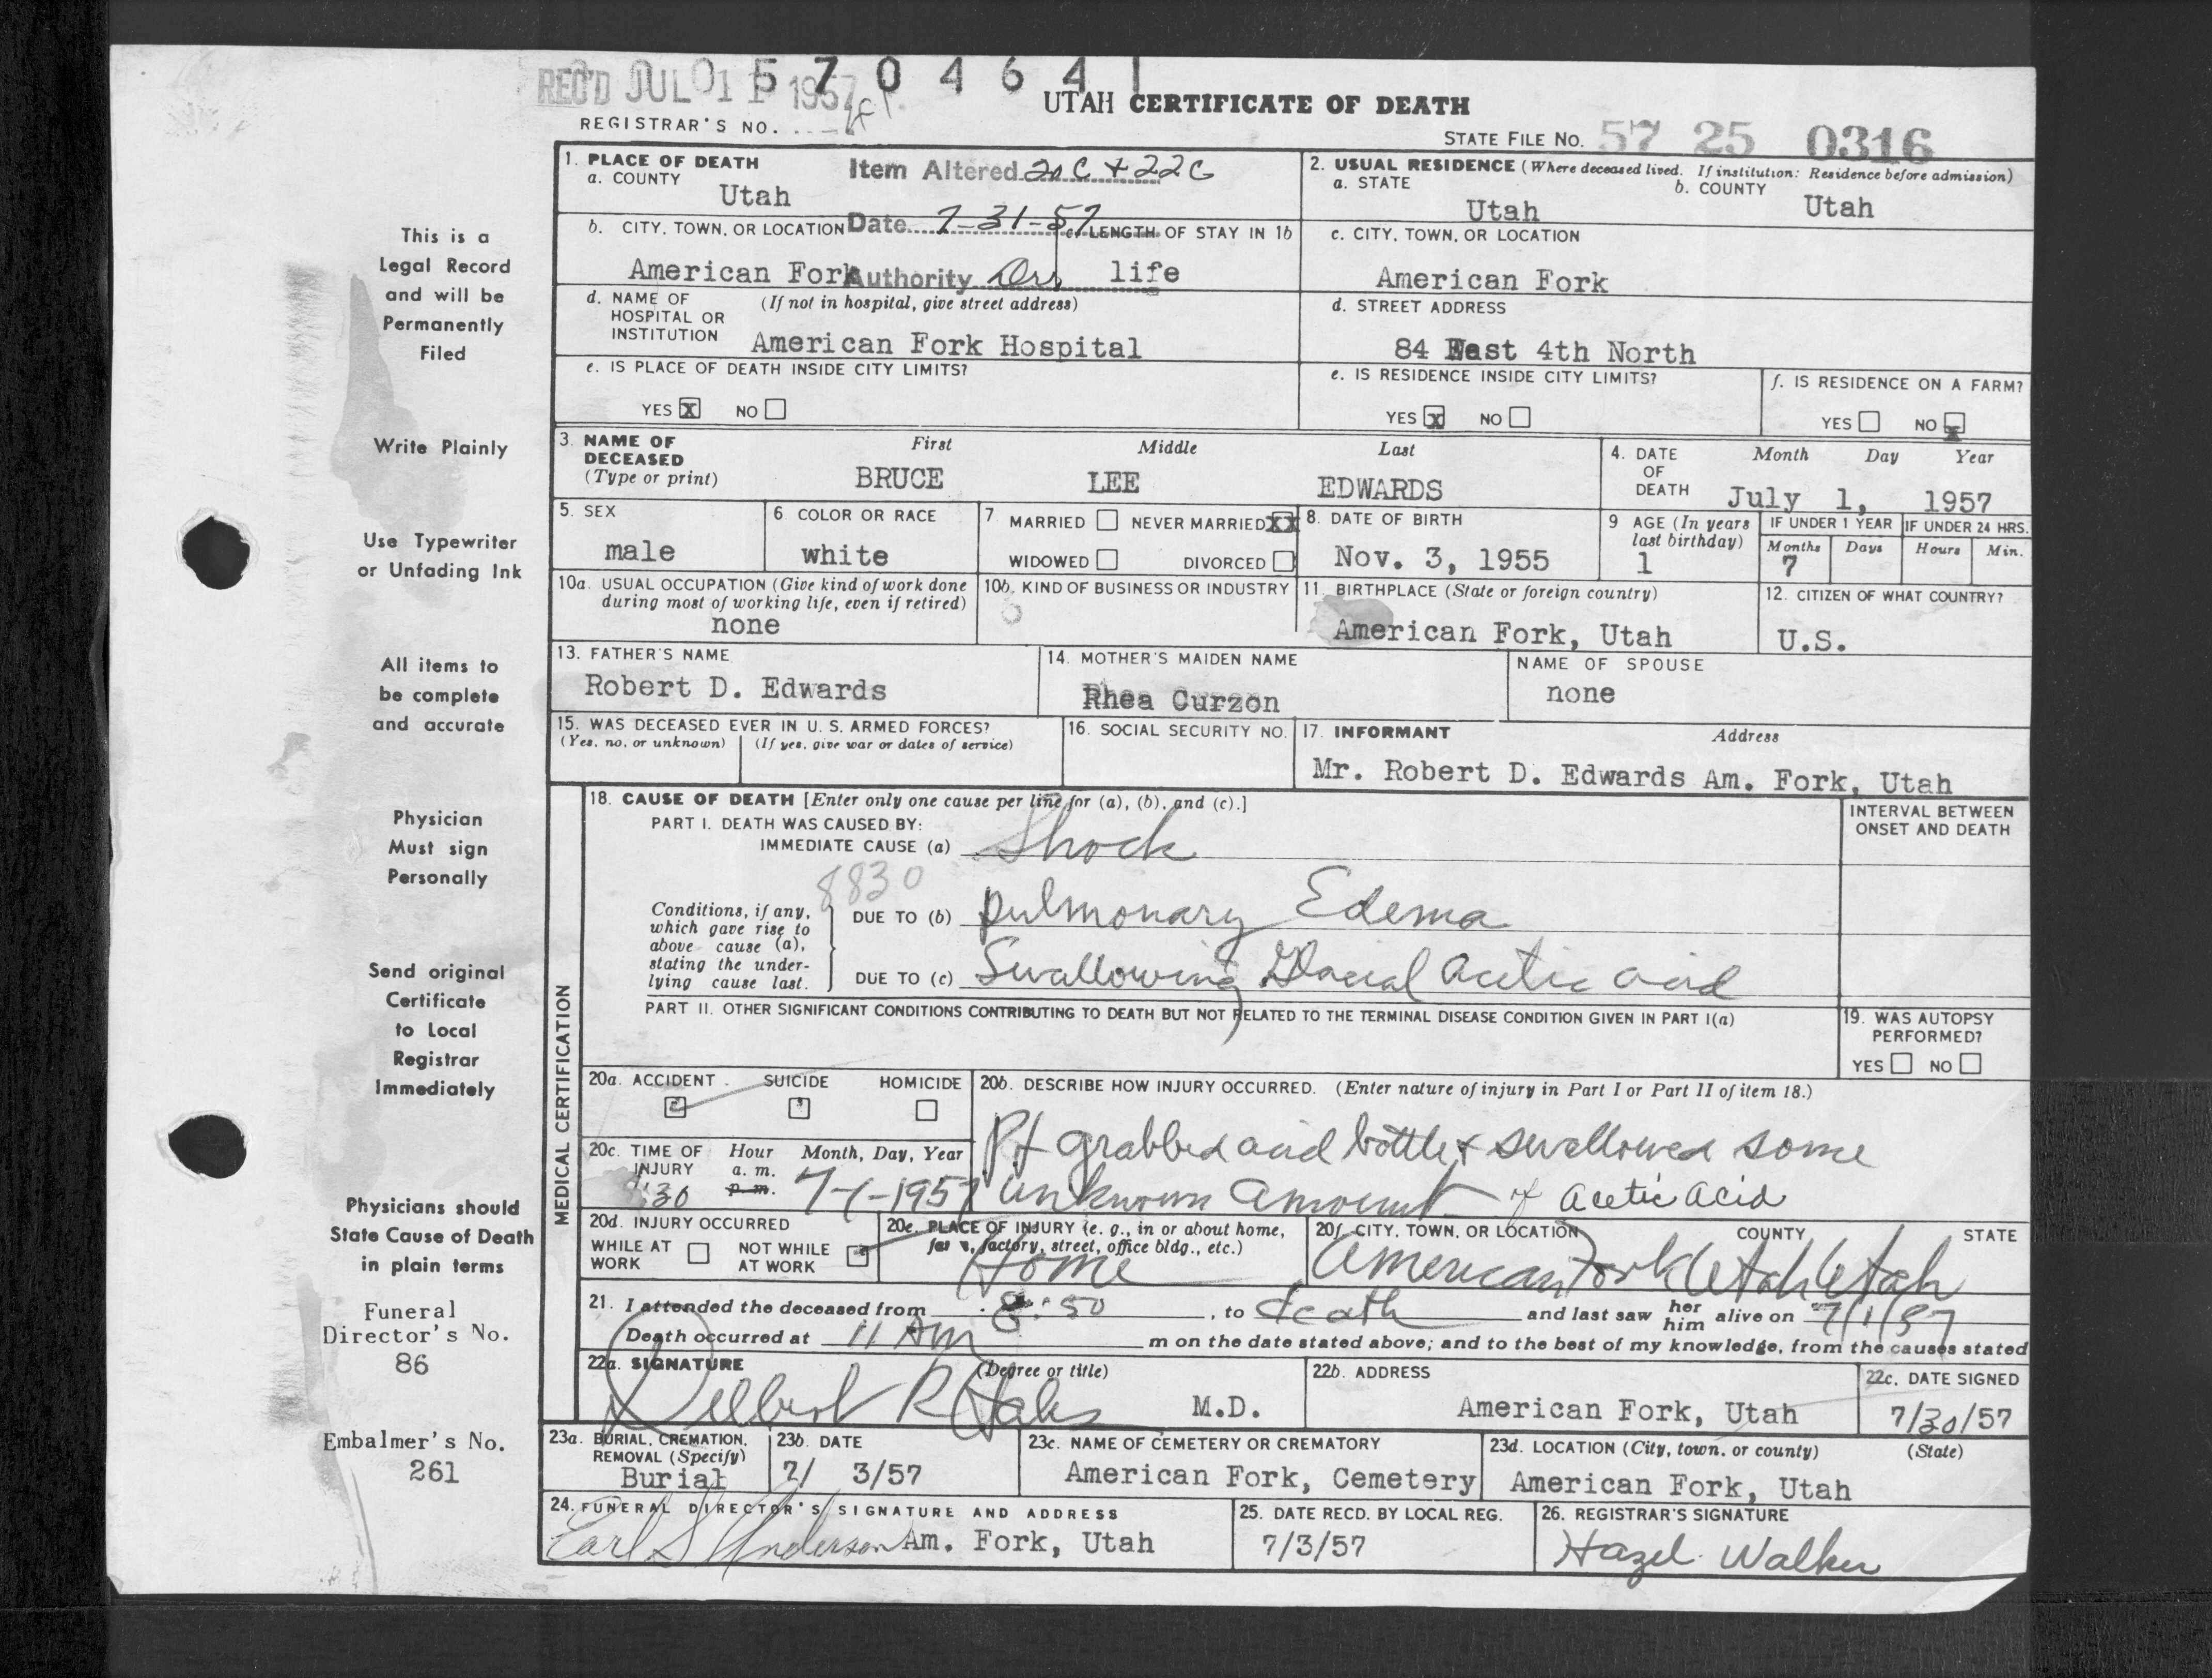 REC'D JUL 0 1 1957
5 7 0 4 6 4 1
UTAH CERTIFICATE OF DEATH
REGISTRAR'S NO.
STATE FILE NO. 57 25 0316
This is a
Legal Record
and will be
Permanently
Filed
Write Plainly
Use Typewriter
or Unfading Ink
All items to
be complete
and accurate
Physician
Must sign
Personally
Send original
Certificate
to Local
Registrar
Immediately
Physicians should
State Cause of Death
in plain terms
Funeral
Director's No.
86
Embalmer's No.
261
1. PLACE OF DEATH
a. COUNTY
Utah
Item Altered 20c + 22c
Date 7-31-57
Authority Drs
b. CITY, TOWN, OR LOCATION
American Fork
c. LENGTH OF STAY IN 1b
life
d. NAME OF HOSPITAL OR INSTITUTION (If not in hospital, give street address)
American Fork Hospital
e. IS PLACE OF DEATH INSIDE CITY LIMITS?
YES X NO
2. USUAL RESIDENCE (Where deceased lived. If institution: Residence before admission)
a. STATE
Utah
b. COUNTY
Utah
c. CITY, TOWN, OR LOCATION
American Fork
d. STREET ADDRESS
84 East 4th North
e. IS RESIDENCE INSIDE CITY LIMITS?
YES X NO
f. IS RESIDENCE ON A FARM?
YES NO X
3. NAME OF DECEASED (Type or print)
First Middle Last
BRUCE LEE EDWARDS
4. DATE OF DEATH Month Day Year
July 1, 1957
5. SEX
male
6. COLOR OR RACE
white
7 MARRIED NEVER MARRIED XX
WIDOWED DIVORCED
8. DATE OF BIRTH
Nov. 3, 1955
9 AGE (In years last birthday)
1
IF UNDER 1 YEAR IF UNDER 24 HRS.
Months Days Hours Min.
7
10a. USUAL OCCUPATION (Give kind of work done during most of working life, even if retired)
none
10b. KIND OF BUSINESS OR INDUSTRY
11. BIRTHPLACE (State or foreign country)
American Fork, Utah
12. CITIZEN OF WHAT COUNTRY?
U.S.
13. FATHER'S NAME
Robert D. Edwards
14. MOTHER'S MAIDEN NAME
Rhea Curzon
NAME OF SPOUSE
none
15. WAS DECEASED EVER IN U. S. ARMED FORCES?
(Yes, no, or unknown) (If yes, give war or dates of service)
16. SOCIAL SECURITY NO.
17. INFORMANT Address
Mr. Robert D. Edwards Am. Fork, Utah
MEDICAL CERTIFICATION
18. CAUSE OF DEATH [Enter only one cause per line for (a), (b), and (c).]
PART I. DEATH WAS CAUSED BY:
IMMEDIATE CAUSE (a) Shock
8830
Conditions, if any, which gave rise to above cause (a), stating the underlying cause last.
DUE TO (b) pulmonary Edema
DUE TO (c) Swallowing Glacial acetic acid
INTERVAL BETWEEN ONSET AND DEATH
PART II. OTHER SIGNIFICANT CONDITIONS CONTRIBUTING TO DEATH BUT NOT RELATED TO THE TERMINAL DISEASE CONDITION GIVEN IN PART I(a)
19. WAS AUTOPSY PERFORMED?
YES NO
20a. ACCIDENT SUICIDE HOMICIDE
20b. DESCRIBE HOW INJURY OCCURRED. (Enter nature of injury in Part I or Part II of item 18.)
Pt grabbed acid bottle & swallowed some
unknown amount of acetic acid
20c. TIME OF INJURY Hour Month, Day, Year
a. m.
p. m.
:30 7-1-1957
20d. INJURY OCCURRED
WHILE AT WORK NOT WHILE AT WORK
20e. PLACE OF INJURY (e. g., in or about home, farm, factory, street, office bldg., etc.)
Home
20f. CITY, TOWN, OR LOCATION COUNTY STATE
American Fork Utah Utah
21. I attended the deceased from 8:50, to death and last saw her him alive on 7/1/57
Death occurred at 11 AM m on the date stated above; and to the best of my knowledge, from the causes stated
22a. SIGNATURE (Degree or title)
Delbert R M.D.
22b. ADDRESS
American Fork, Utah
22c. DATE SIGNED
7/30/57
23a. BURIAL, CREMATION, REMOVAL (Specify)
Burial
23b. DATE
7/ 3/57
23c. NAME OF CEMETERY OR CREMATORY
American Fork, Cemetery
23d. LOCATION (City, town, or county) (State)
American Fork, Utah
24. FUNERAL DIRECTOR'S SIGNATURE AND ADDRESS
Earl S Anderson Am. Fork, Utah
25. DATE RECD. BY LOCAL REG.
7/3/57
26. REGISTRAR'S SIGNATURE
Hazel Walker